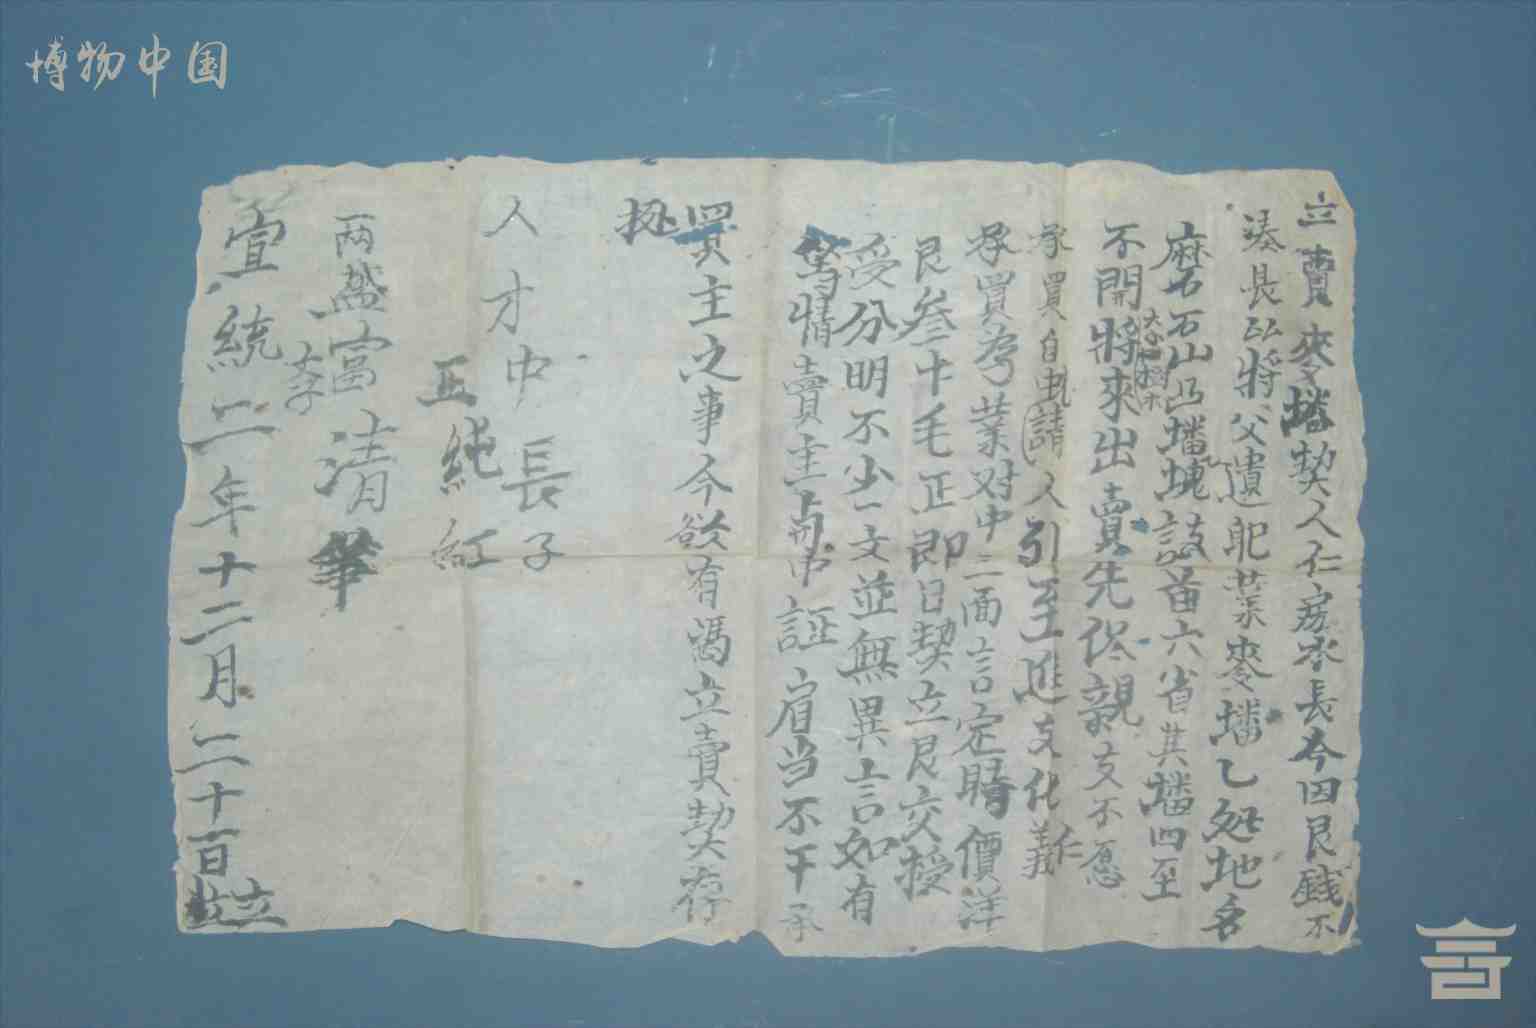 博物中国
立賣麥墦契人仁房永長今因艮錢不
湊長公將父遺耶業麥墦乙処地名
磨石山凸墦塊該苗六省其墦四至
不開將來出賣先侭親支不愿
承買自請人引至進支化義仁
承買為業对中三面言定時價洋
艮叁十毛正即日契立艮交授
受分明不少一文並無異言如有
情賣主向中証肩当不干承
買主之事今欲有馮立賣契存
拠
人才中長子
正純紅
兩益富清筆
宣統二年十二月二十一日立